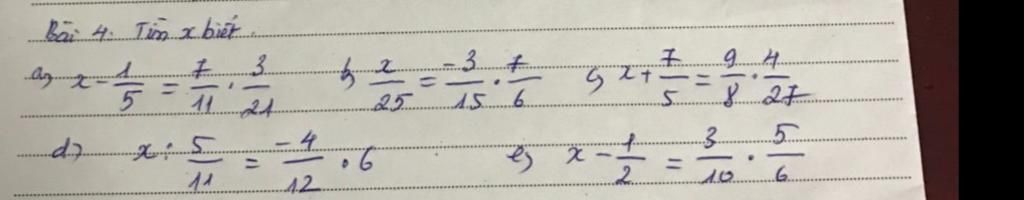 Bài 4. Tìm x biết.
a, x - 1/5 = 7/11 . 3/21 b, x/25 = -3/15 . 7/6 c, x + 7/5 = 9/8 . 4/27
d) x : 5/11 = -4/12 . 6 e, x - 1/2 = 3/10 . 5/6